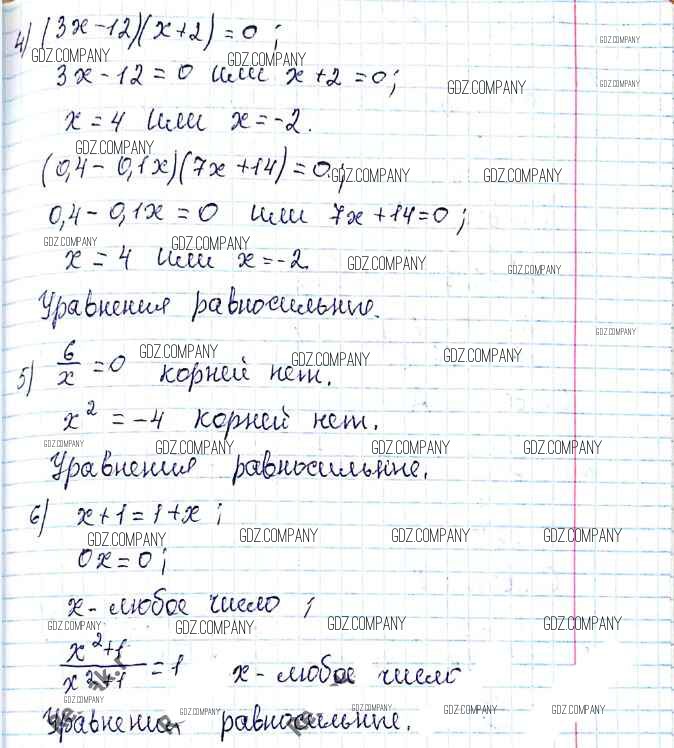 4) (3x-12)(x+2)=0;
GDZ.COMPANY GDZ.COMPANY GDZ.COMPANY
3x-12=0 или x+2=0;
GDZ.COMPANY GDZ.COMPANY
x=4 или x=-2.
GDZ.COMPANY
(0,4-0,1x)(7x+14)=0;
GDZ.COMPANY GDZ.COMPANY
0,4-0,1x=0 или 7x+14=0;
GDZ.COMPANY GDZ.COMPANY
x=4 или x=-2.
GDZ.COMPANY GDZ.COMPANY
Уравнения равносильные.
GDZ.COMPANY
5) 6/x=0 корней нет.
GDZ.COMPANY GDZ.COMPANY GDZ.COMPANY
x²=-4 корней нет.
GDZ.COMPANY GDZ.COMPANY GDZ.COMPANY GDZ.COMPANY
Уравнения равносильные.
6) x+1=1+x;
GDZ.COMPANY GDZ.COMPANY GDZ.COMPANY GDZ.COMPANY
0x=0;
x-любое число;
GDZ.COMPANY GDZ.COMPANY GDZ.COMPANY GDZ.COMPANY
x²+1/x²+1=1 x-любое число
GDZ.COMPANY GDZ.COMPANY GDZ.COMPANY GDZ.COMPANY GDZ.COMPANY
Уравнения равносильные.